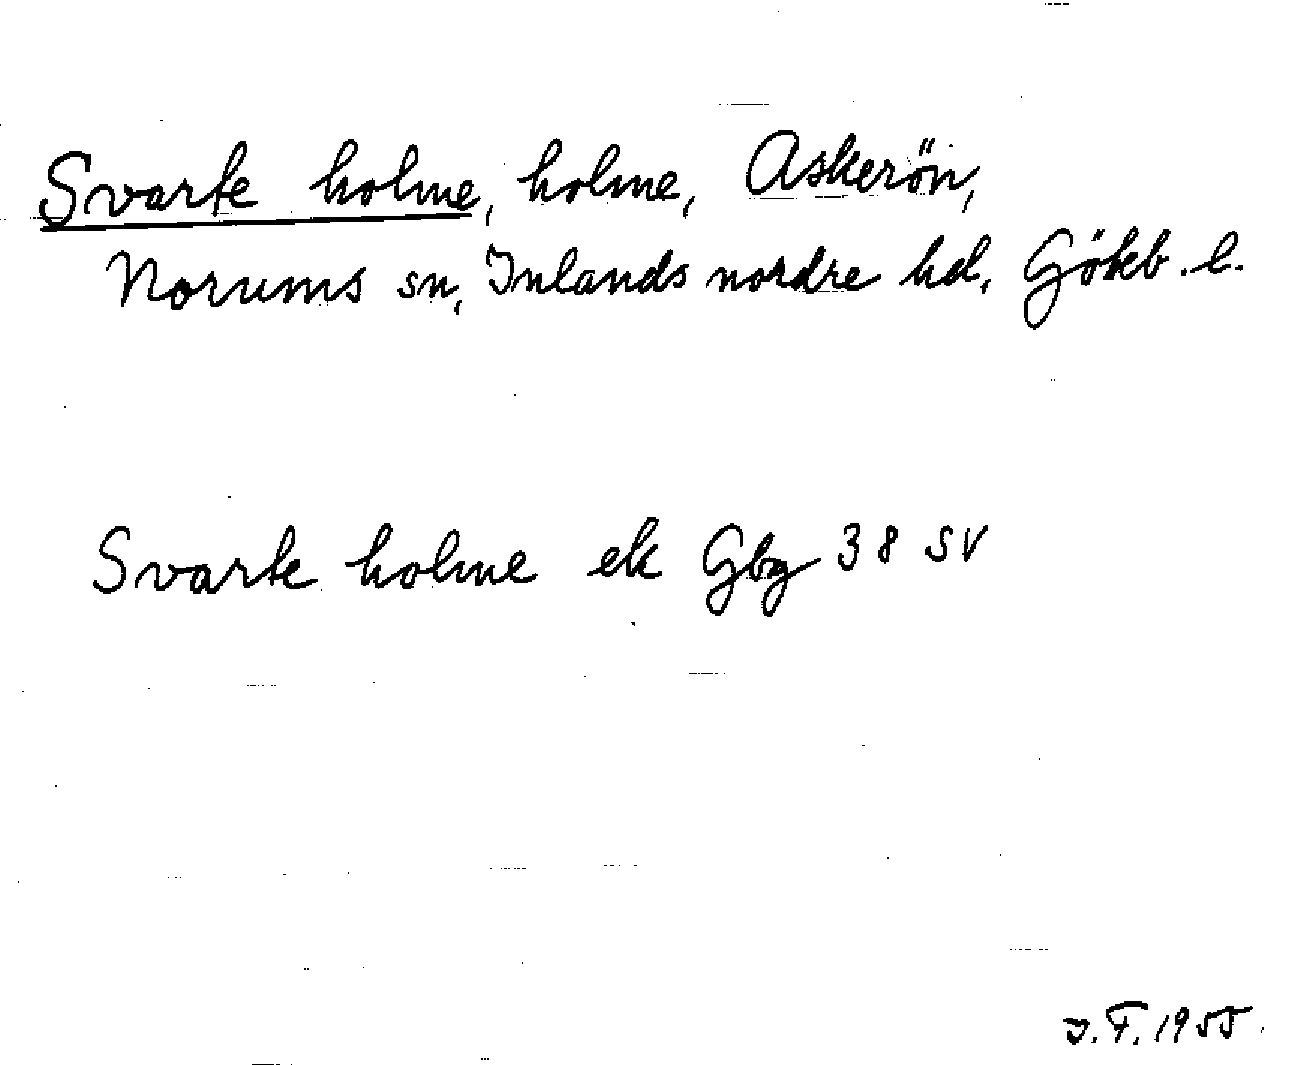 Svarte holme, holme, Askerön,
Norums sn, Inlands nordre hd, Gökb. l.
Svarte holme ek Gbg 38 SV
J.F. 1955.